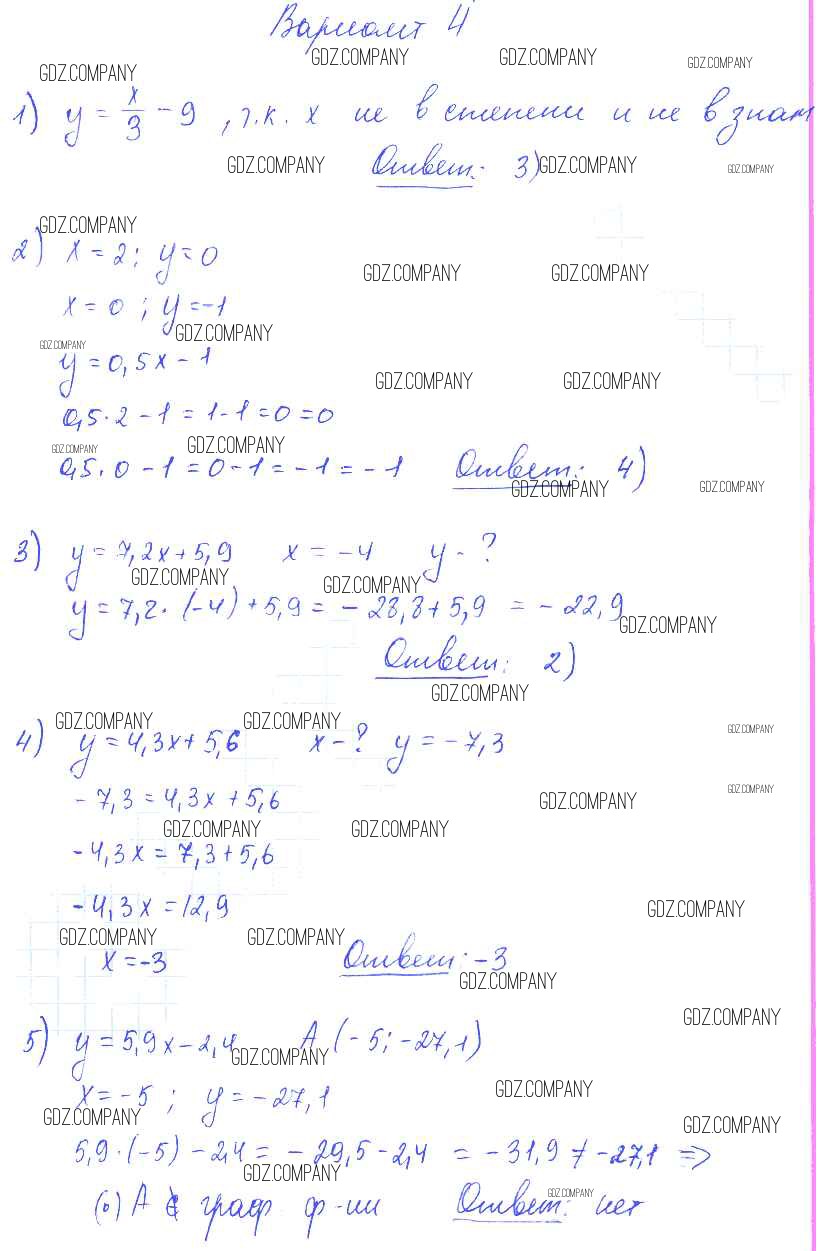 Вариант 4
GDZ.COMPANY GDZ.COMPANY GDZ.COMPANY GDZ.COMPANY
1) y = x/3 - 9 , т.к. x не в степени и не в знам
GDZ.COMPANY Ответ: 3) GDZ.COMPANY GDZ.COMPANY
GDZ.COMPANY
2) x = 2; y = 0
GDZ.COMPANY GDZ.COMPANY
x = 0 ; y = -1
GDZ.COMPANY GDZ.COMPANY
y = 0,5x - 1
GDZ.COMPANY GDZ.COMPANY
0,5·2 - 1 = 1-1 = 0 = 0
GDZ.COMPANY GDZ.COMPANY
0,5·0 - 1 = 0 - 1 = -1 = -1 Ответ: 4)
GDZ.COMPANY GDZ.COMPANY
3) y = 7,2x + 5,9 x = -4 y - ?
GDZ.COMPANY GDZ.COMPANY
y = 7,2·(-4) + 5,9 = -28,8 + 5,9 = -22,9
GDZ.COMPANY
Ответ: 2)
GDZ.COMPANY
GDZ.COMPANY GDZ.COMPANY GDZ.COMPANY
4) y = 4,3x + 5,6 x - ? y = -7,3
GDZ.COMPANY
-7,3 = 4,3x + 5,6 GDZ.COMPANY
GDZ.COMPANY GDZ.COMPANY
-4,3x = 7,3 + 5,6
-4,3x = 12,9 GDZ.COMPANY
GDZ.COMPANY GDZ.COMPANY
x = -3 Ответ: -3
GDZ.COMPANY
GDZ.COMPANY
5) y = 5,9x - 2,4 A (-5; -27,1)
GDZ.COMPANY
x = -5 ; y = -27,1 GDZ.COMPANY
GDZ.COMPANY GDZ.COMPANY
5,9·(-5) - 2,4 = -29,5 - 2,4 = -31,9 ≠ -27,1 ⇒
GDZ.COMPANY
А ∉ граф ф-ии Ответ: нет
GDZ.COMPANY